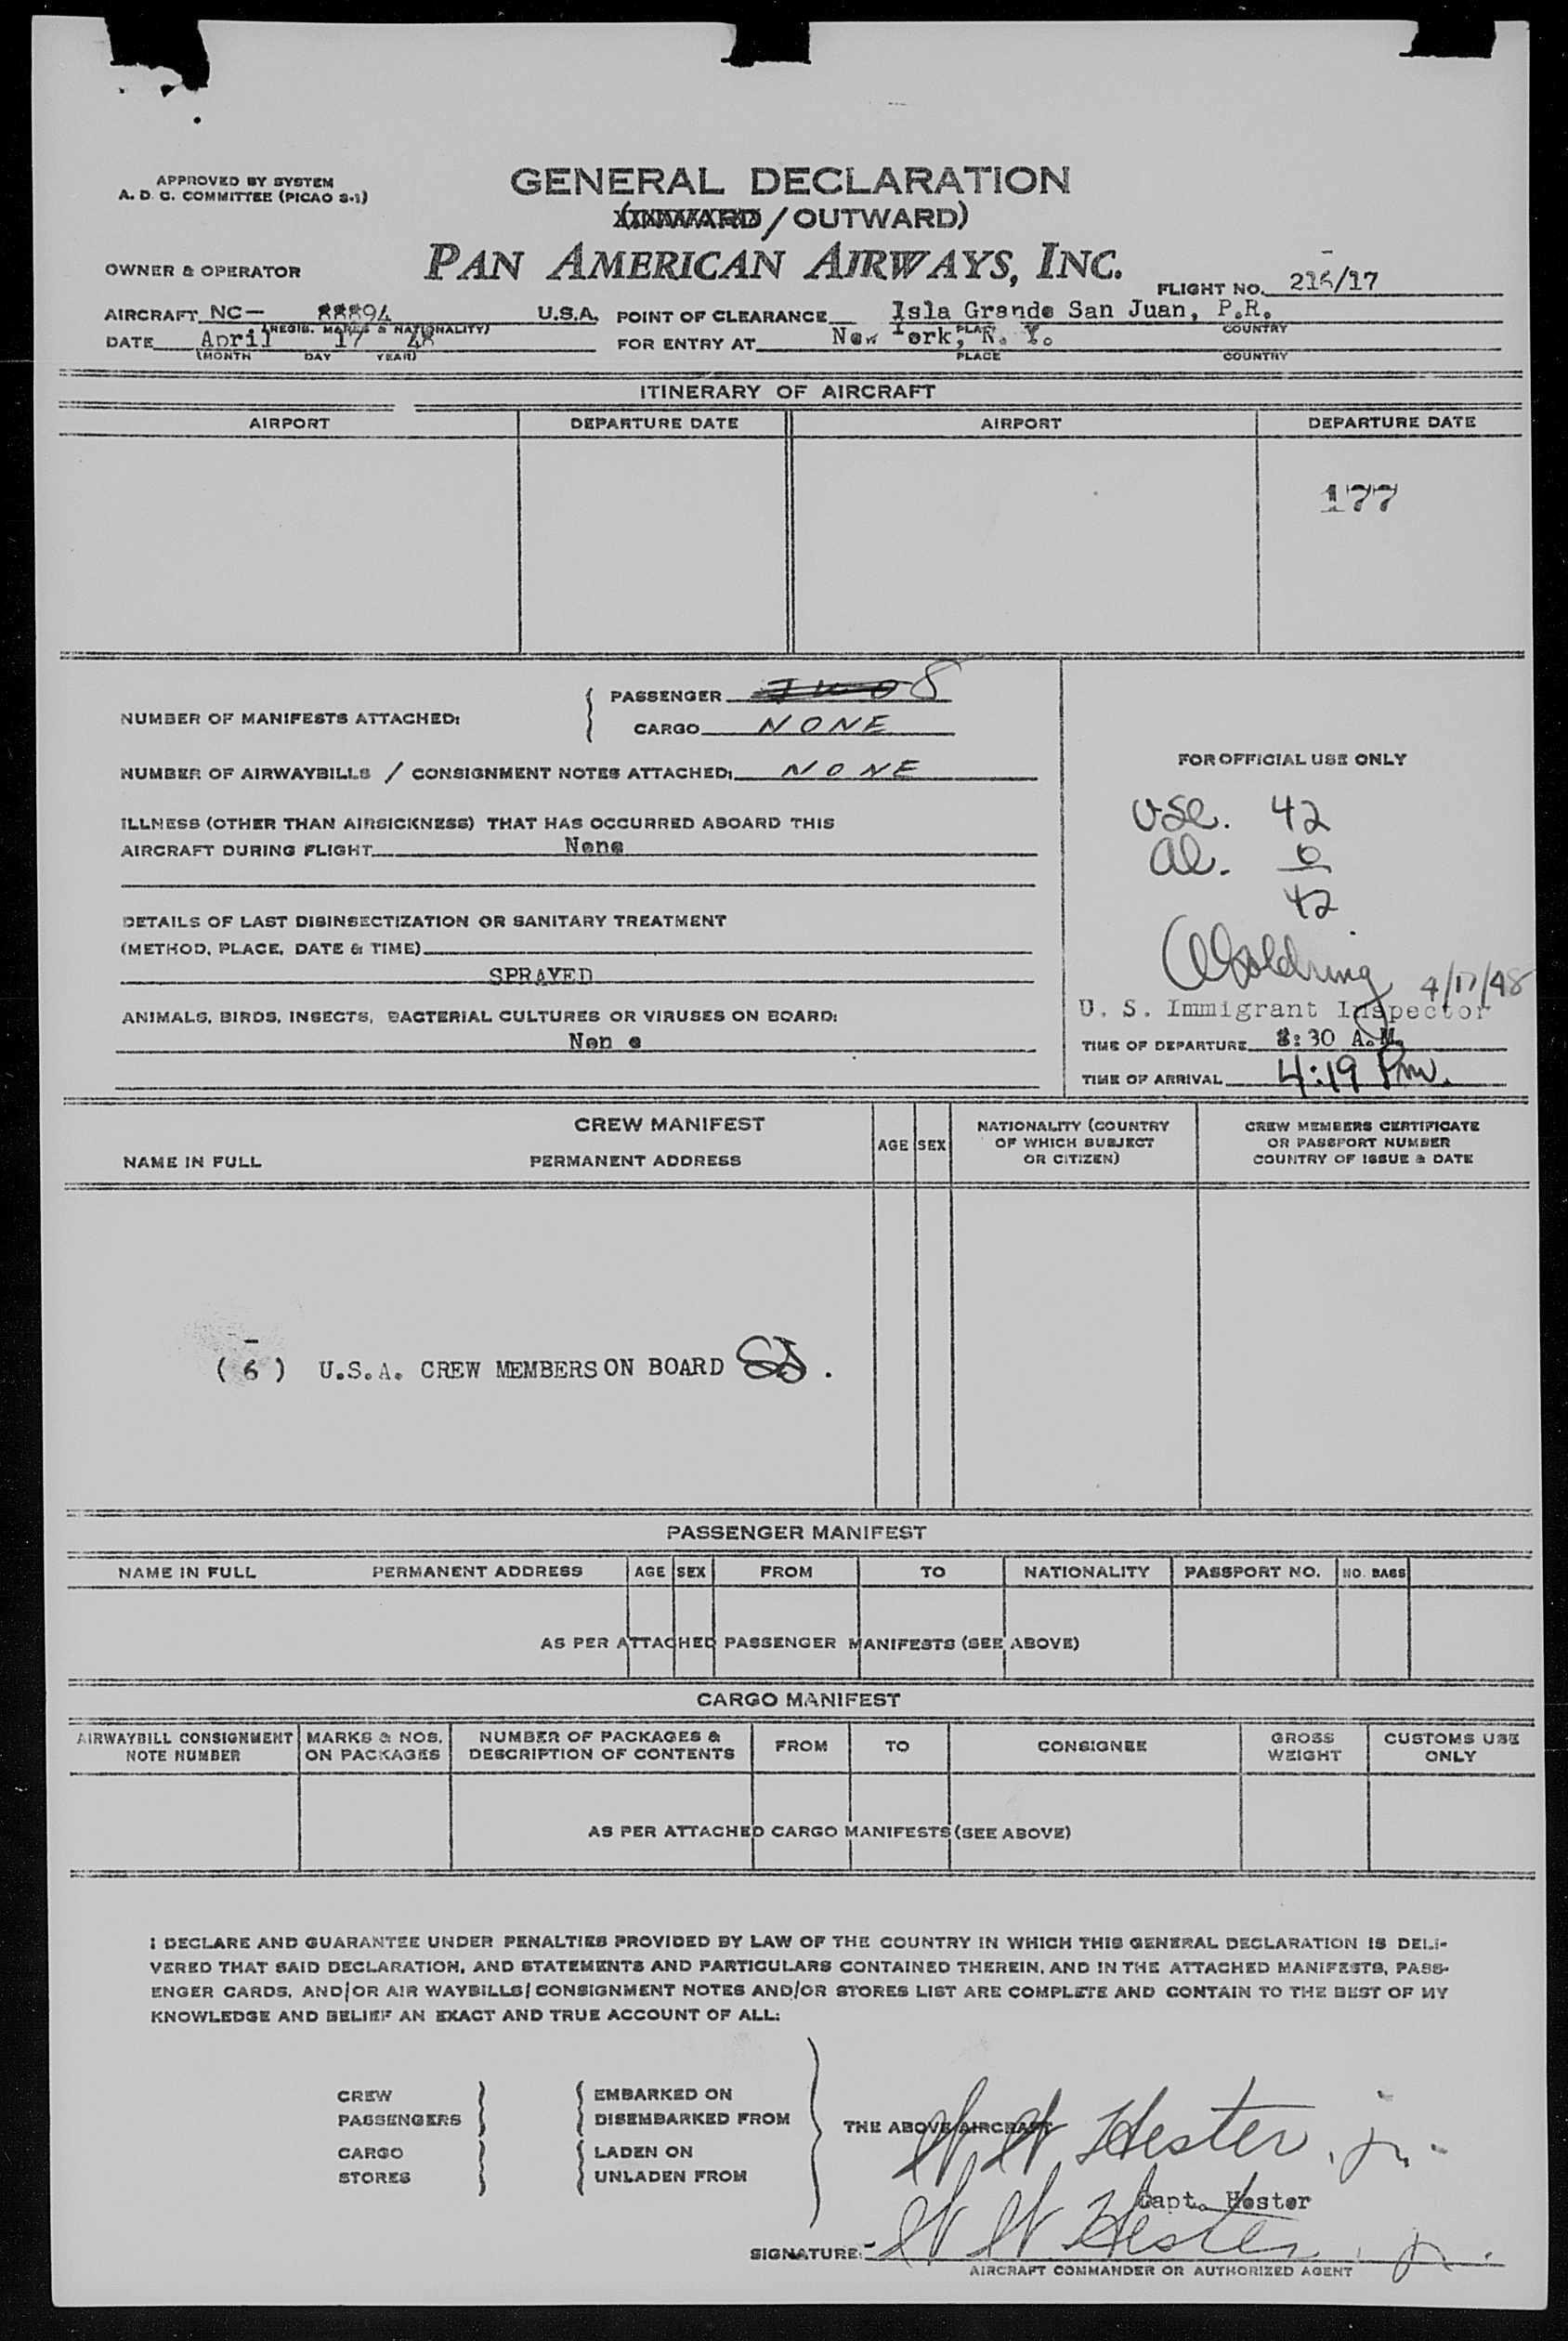 APPROVED BY SYSTEM
A. D. C. COMMITTEE (PICAO S-1)
GENERAL DECLARATION
(INWARD / OUTWARD)
OWNER & OPERATOR
PAN AMERICAN AIRWAYS, INC.
FLIGHT NO. 216/17
AIRCRAFT NC- 88894 U.S.A. POINT OF CLEARANCE Isla Grande San Juan, P.R.
(REGIS. MARKS & NATIONALITY) PLACE COUNTRY
DATE April 17 48 FOR ENTRY AT New York, N. Y.
(MONTH DAY YEAR) PLACE COUNTRY
ITINERARY OF AIRCRAFT
AIRPORT DEPARTURE DATE AIRPORT DEPARTURE DATE
177
NUMBER OF MANIFESTS ATTACHED: PASSENGER TWO 8
CARGO NONE
NUMBER OF AIRWAYBILLS / CONSIGNMENT NOTES ATTACHED: NONE
ILLNESS (OTHER THAN AIRSICKNESS) THAT HAS OCCURRED ABOARD THIS
AIRCRAFT DURING FLIGHT None
DETAILS OF LAST DISINSECTIZATION OR SANITARY TREATMENT
(METHOD, PLACE, DATE & TIME)
SPRAYED
ANIMALS, BIRDS, INSECTS, BACTERIAL CULTURES OR VIRUSES ON BOARD:
Non e
FOR OFFICIAL USE ONLY
USC. 42
al. 0
42
4/17/48
U. S. Immigrant Inspector
TIME OF DEPARTURE 8:30 A.M.
TIME OF ARRIVAL 4:19 Pm.
CREW MANIFEST
NAME IN FULL PERMANENT ADDRESS AGE SEX NATIONALITY (COUNTRY OF WHICH SUBJECT OR CITIZEN) CREW MEMBERS CERTIFICATE OR PASSPORT NUMBER COUNTRY OF ISSUE & DATE
( 6 ) U.S.A. CREW MEMBERS ON BOARD .
PASSENGER MANIFEST
NAME IN FULL PERMANENT ADDRESS AGE SEX FROM TO NATIONALITY PASSPORT NO. NO. BAGS
AS PER ATTACHED PASSENGER MANIFESTS (SEE ABOVE)
CARGO MANIFEST
AIRWAYBILL CONSIGNMENT NOTE NUMBER MARKS & NOS. ON PACKAGES NUMBER OF PACKAGES & DESCRIPTION OF CONTENTS FROM TO CONSIGNEE GROSS WEIGHT CUSTOMS USE ONLY
AS PER ATTACHED CARGO MANIFESTS (SEE ABOVE)
I DECLARE AND GUARANTEE UNDER PENALTIES PROVIDED BY LAW OF THE COUNTRY IN WHICH THIS GENERAL DECLARATION IS DELI-
VERED THAT SAID DECLARATION, AND STATEMENTS AND PARTICULARS CONTAINED THEREIN, AND IN THE ATTACHED MANIFESTS, PASS-
ENGER CARDS, AND/OR AIR WAYBILLS/CONSIGNMENT NOTES AND/OR STORES LIST ARE COMPLETE AND CONTAIN TO THE BEST OF MY
KNOWLEDGE AND BELIEF AN EXACT AND TRUE ACCOUNT OF ALL:
CREW EMBARKED ON
PASSENGERS DISEMBARKED FROM
THE ABOVE AIRCRAFT
CARGO LADEN ON
STORES UNLADEN FROM
W W Hester, jr.
Capt. Hester
SIGNATURE: W W Hester, jr.
AIRCRAFT COMMANDER OR AUTHORIZED AGENT